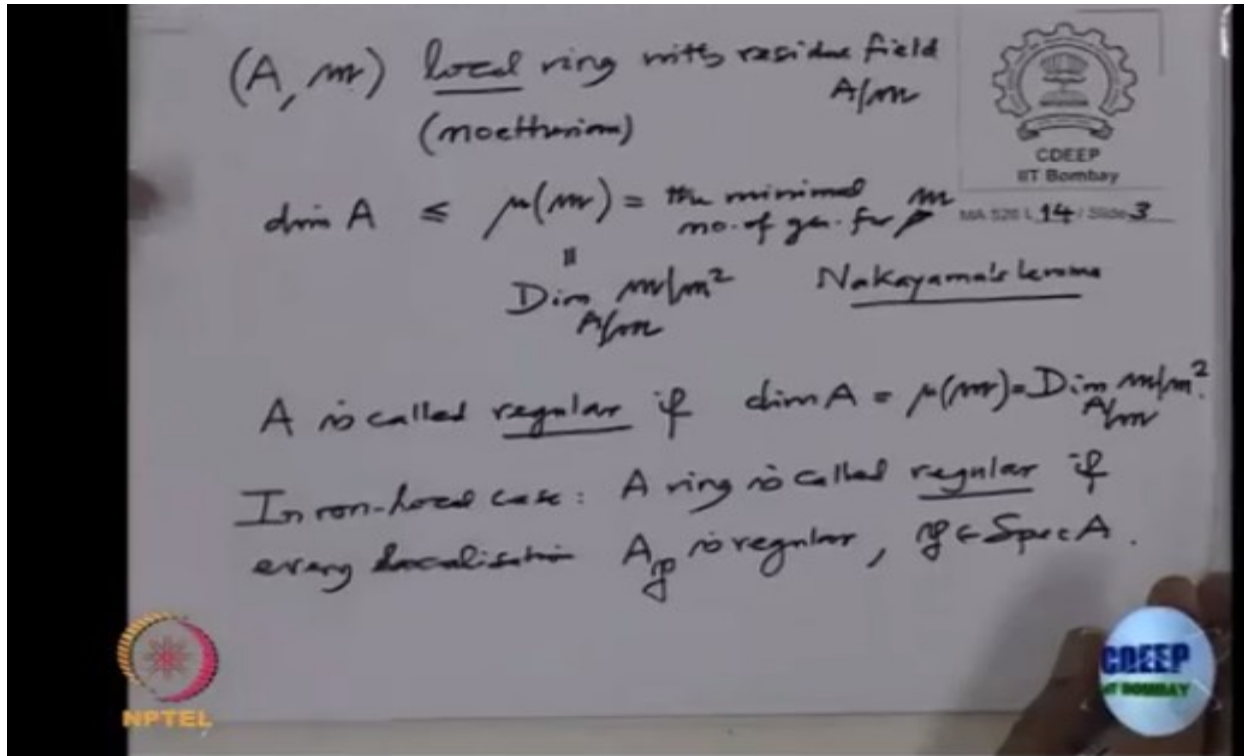 (A, m) local ring with residue field
A/m
(noetherian)
CDEEP
IIT Bombay
MA 526 L 14 / Slide 3
dim A ≤ μ(m) = the minimal
no. of gen. for m
||
Dim m/m² Nakayama's lemma
A/m
A is called regular if dim A = μ(m) = Dim m/m².
A/m
In non-local case: A ring is called regular if
every localisation A_p is regular, p ∈ Spec A.
NPTEL
CDEEP
IIT BOMBAY